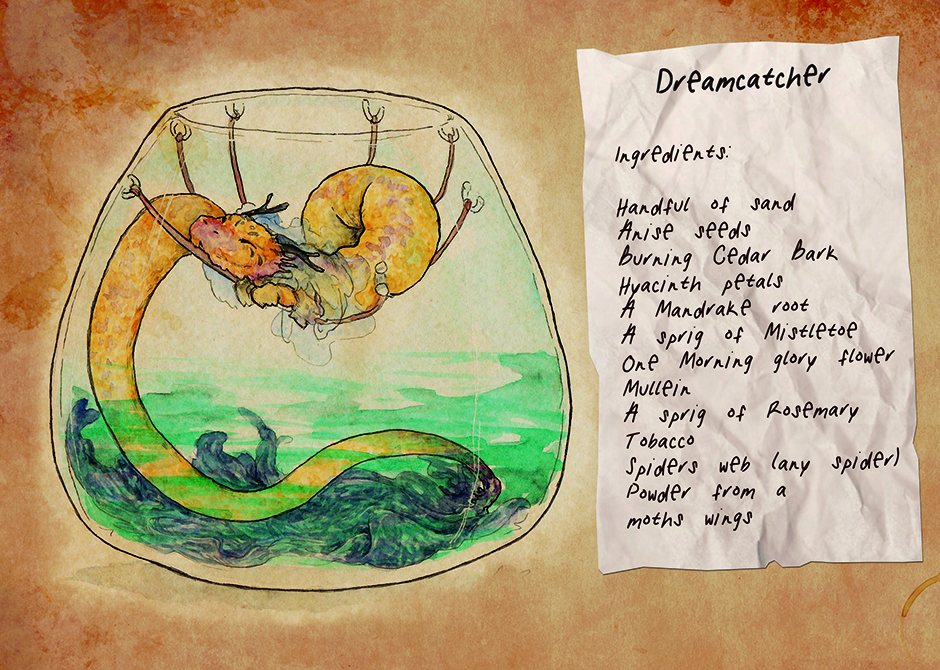 Dreamcatcher
Ingredients:
Handful of sand
Anise seeds
Burning Cedar Bark
Hyacinth petals
A Mandrake root
A sprig of Mistletoe
One Morning glory flower
Mullein
A sprig of Rosemary
Tobacco
Spiders web (any spider)
Powder from a
moths wings